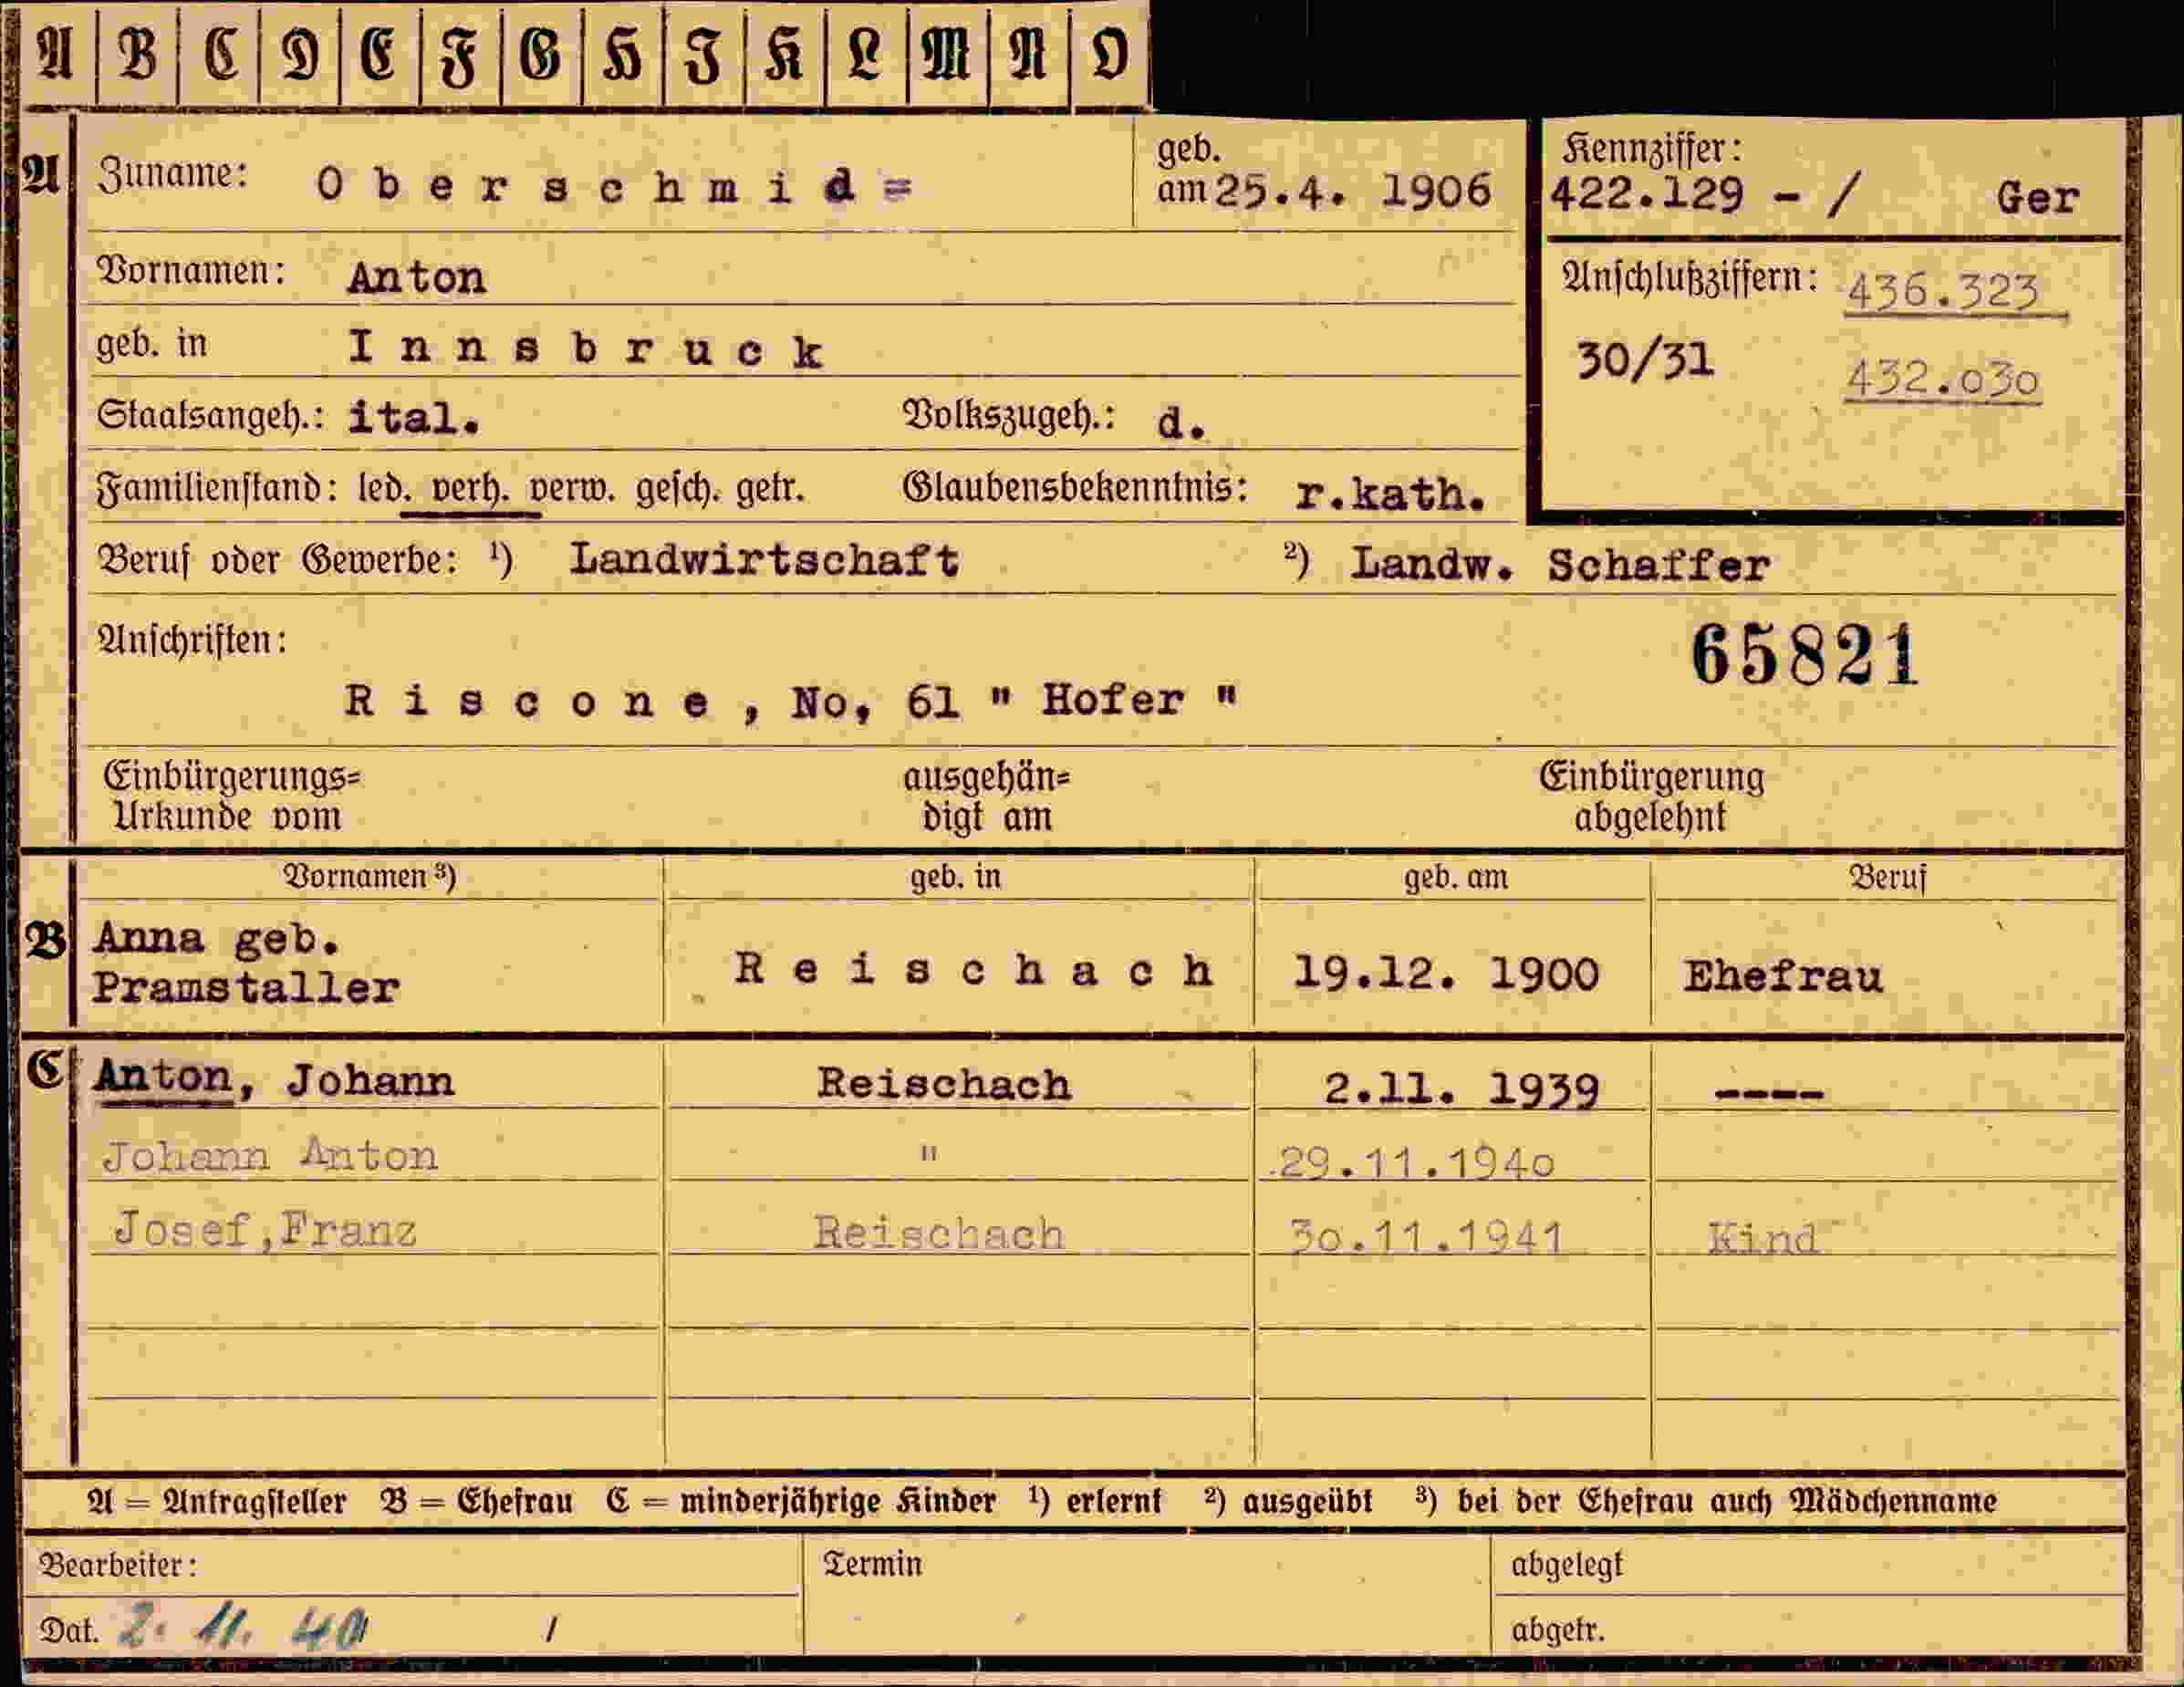 A B C D E F G H J K L M N O
A Zuname: Oberschmid= geb. am 25.4. 1906 Kennziffer: 422.129 - / Ger
Vornamen: Anton Anschlußziffern: 436.323
geb. in Innsbruck 30/31 432.030
Staatsangeh.: ital. Volkszugeh.: d.
Familienstand: led. verh. verw. gesch. getr. Glaubensbekenntnis: r.kath.
Beruf oder Gewerbe: ¹) Landwirtschaft ²) Landw. Schaffer
Anschriften: 65821
Riscone, No, 61 " Hofer "
Einbürgerungs= ausgehän= Einbürgerung
Urkunde vom digt am abgelehnt
Vornamen ³) geb. in geb. am Beruf
B Anna geb.
Pramstaller Reischach 19.12. 1900 Ehefrau
C Anton, Johann Reischach 2.11. 1939 ----
Johann Anton " 29.11.1940
Josef,Franz Reischach 30.11.1941 Kind
A = Antragsteller B = Ehefrau C = minderjährige Kinder ¹) erlernt ²) ausgeübt ³) bei der Ehefrau auch Mädchenname
Bearbeiter: Termin abgelegt
Dat. 2. 11. 40 / abgetr.